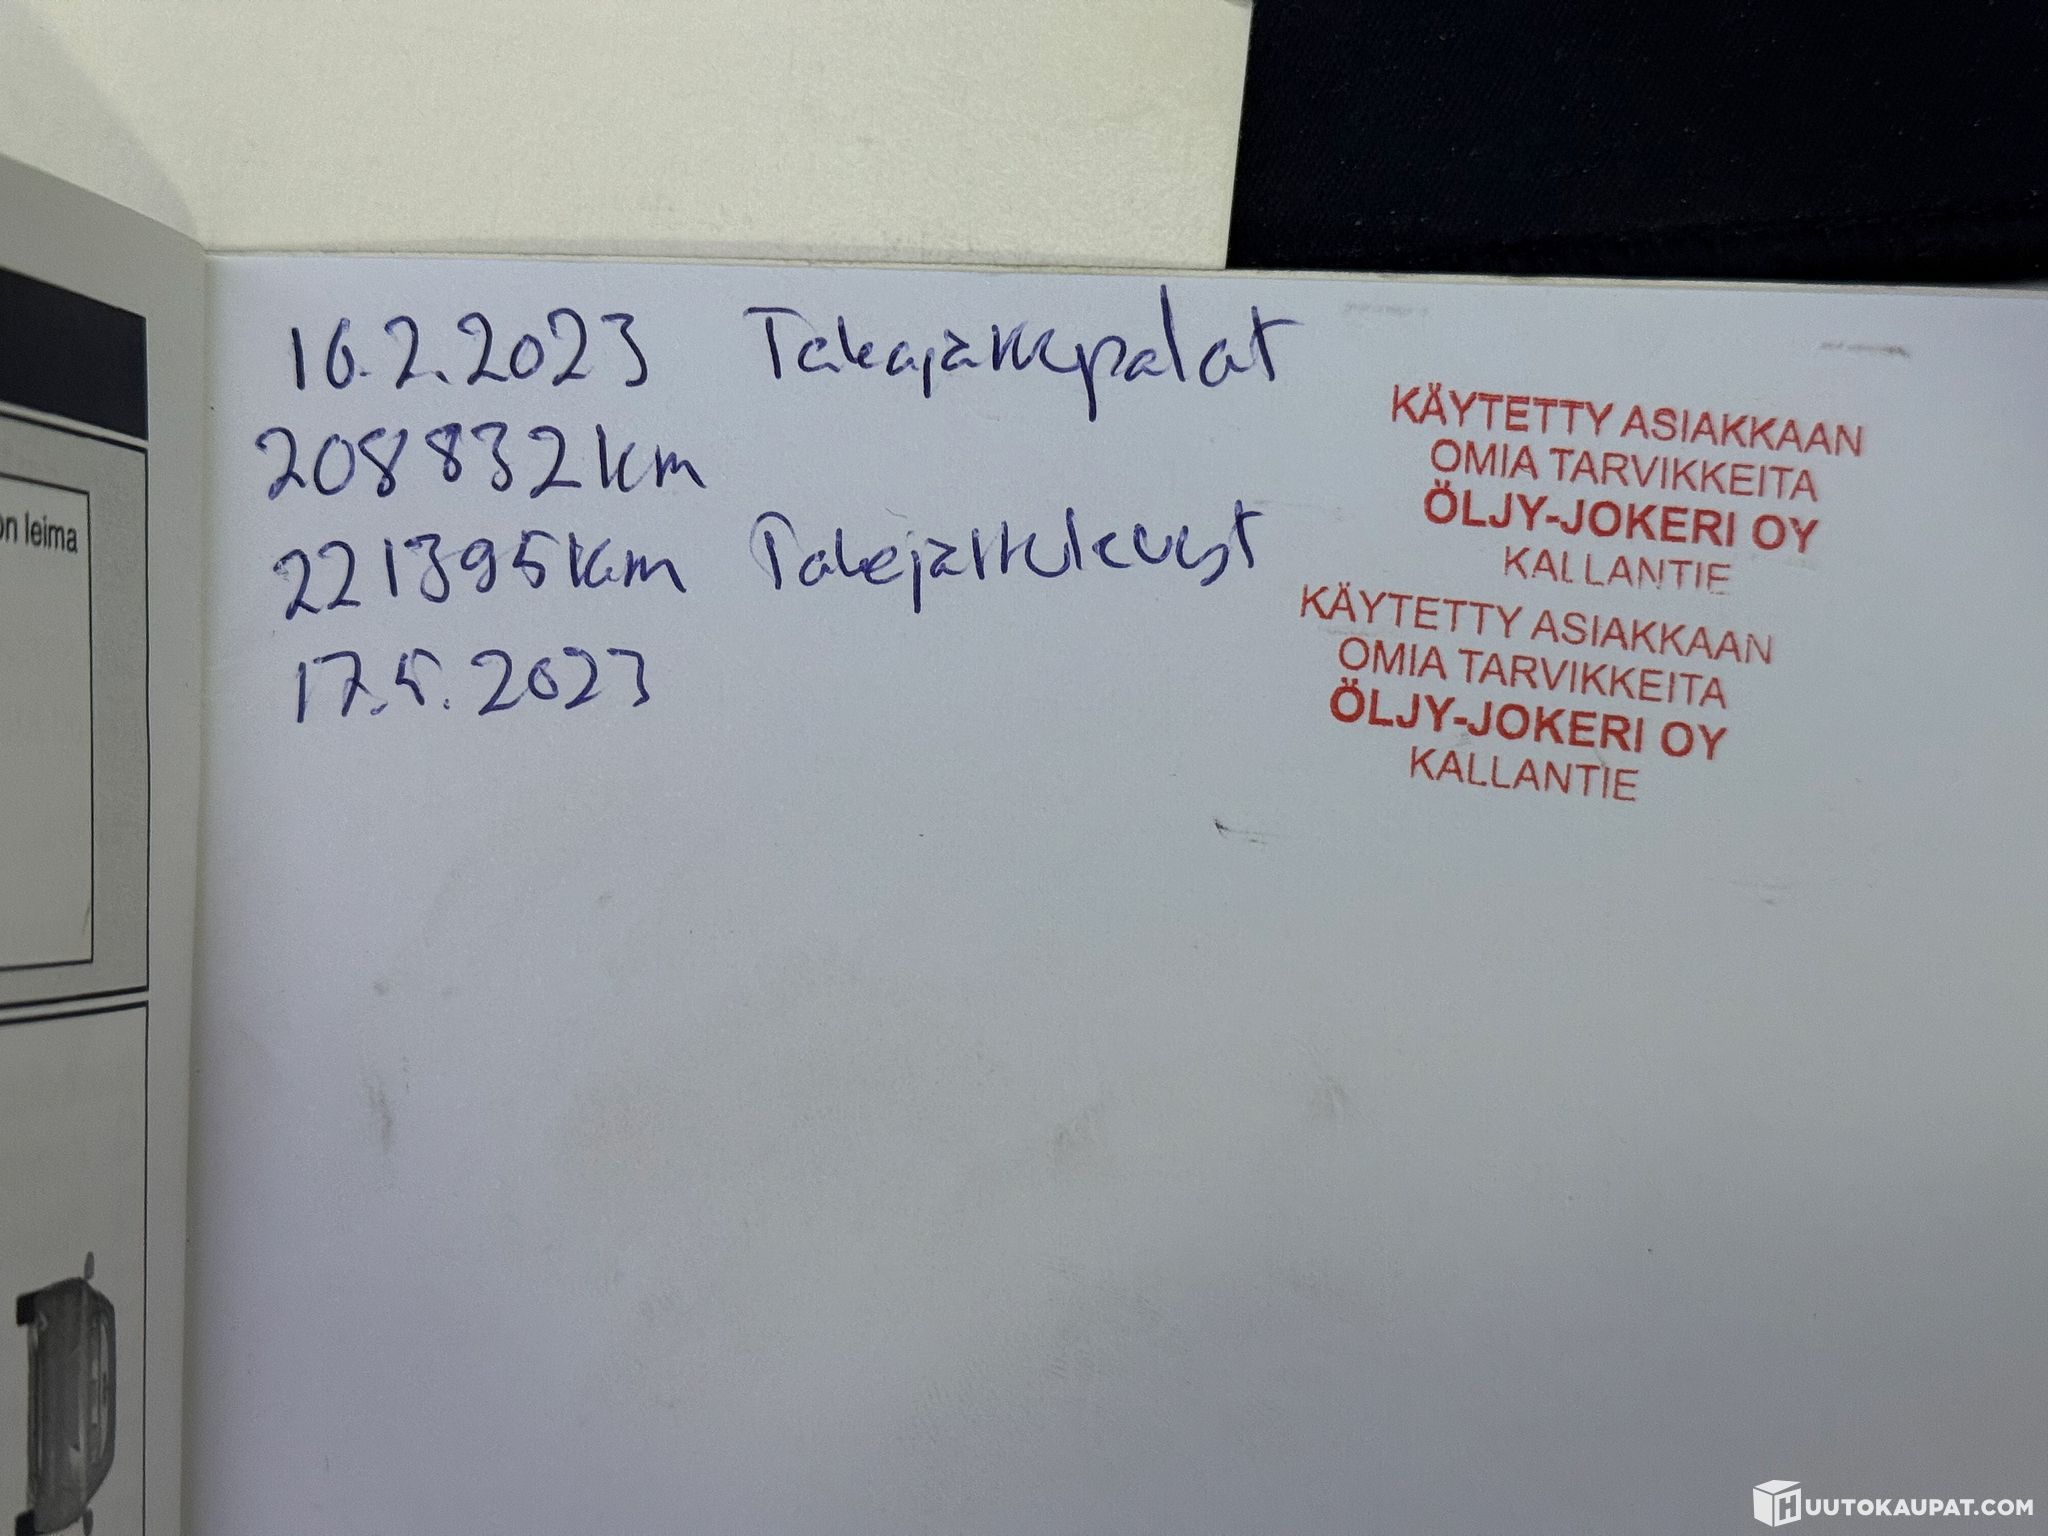 16.2.2023 Takajarrupalat
208 832 km
221395 km Takajarrulevyt
17.5.2023
KÄYTETTY ASIAKKAAN
OMIA TARVIKKEITA
ÖLJY-JOKERI OY
KALLANTIE
KÄYTETTY ASIAKKAAN
OMIA TARVIKKEITA
ÖLJY-JOKERI OY
KALLANTIE
on leima
HUUTOKAUPAT.COM